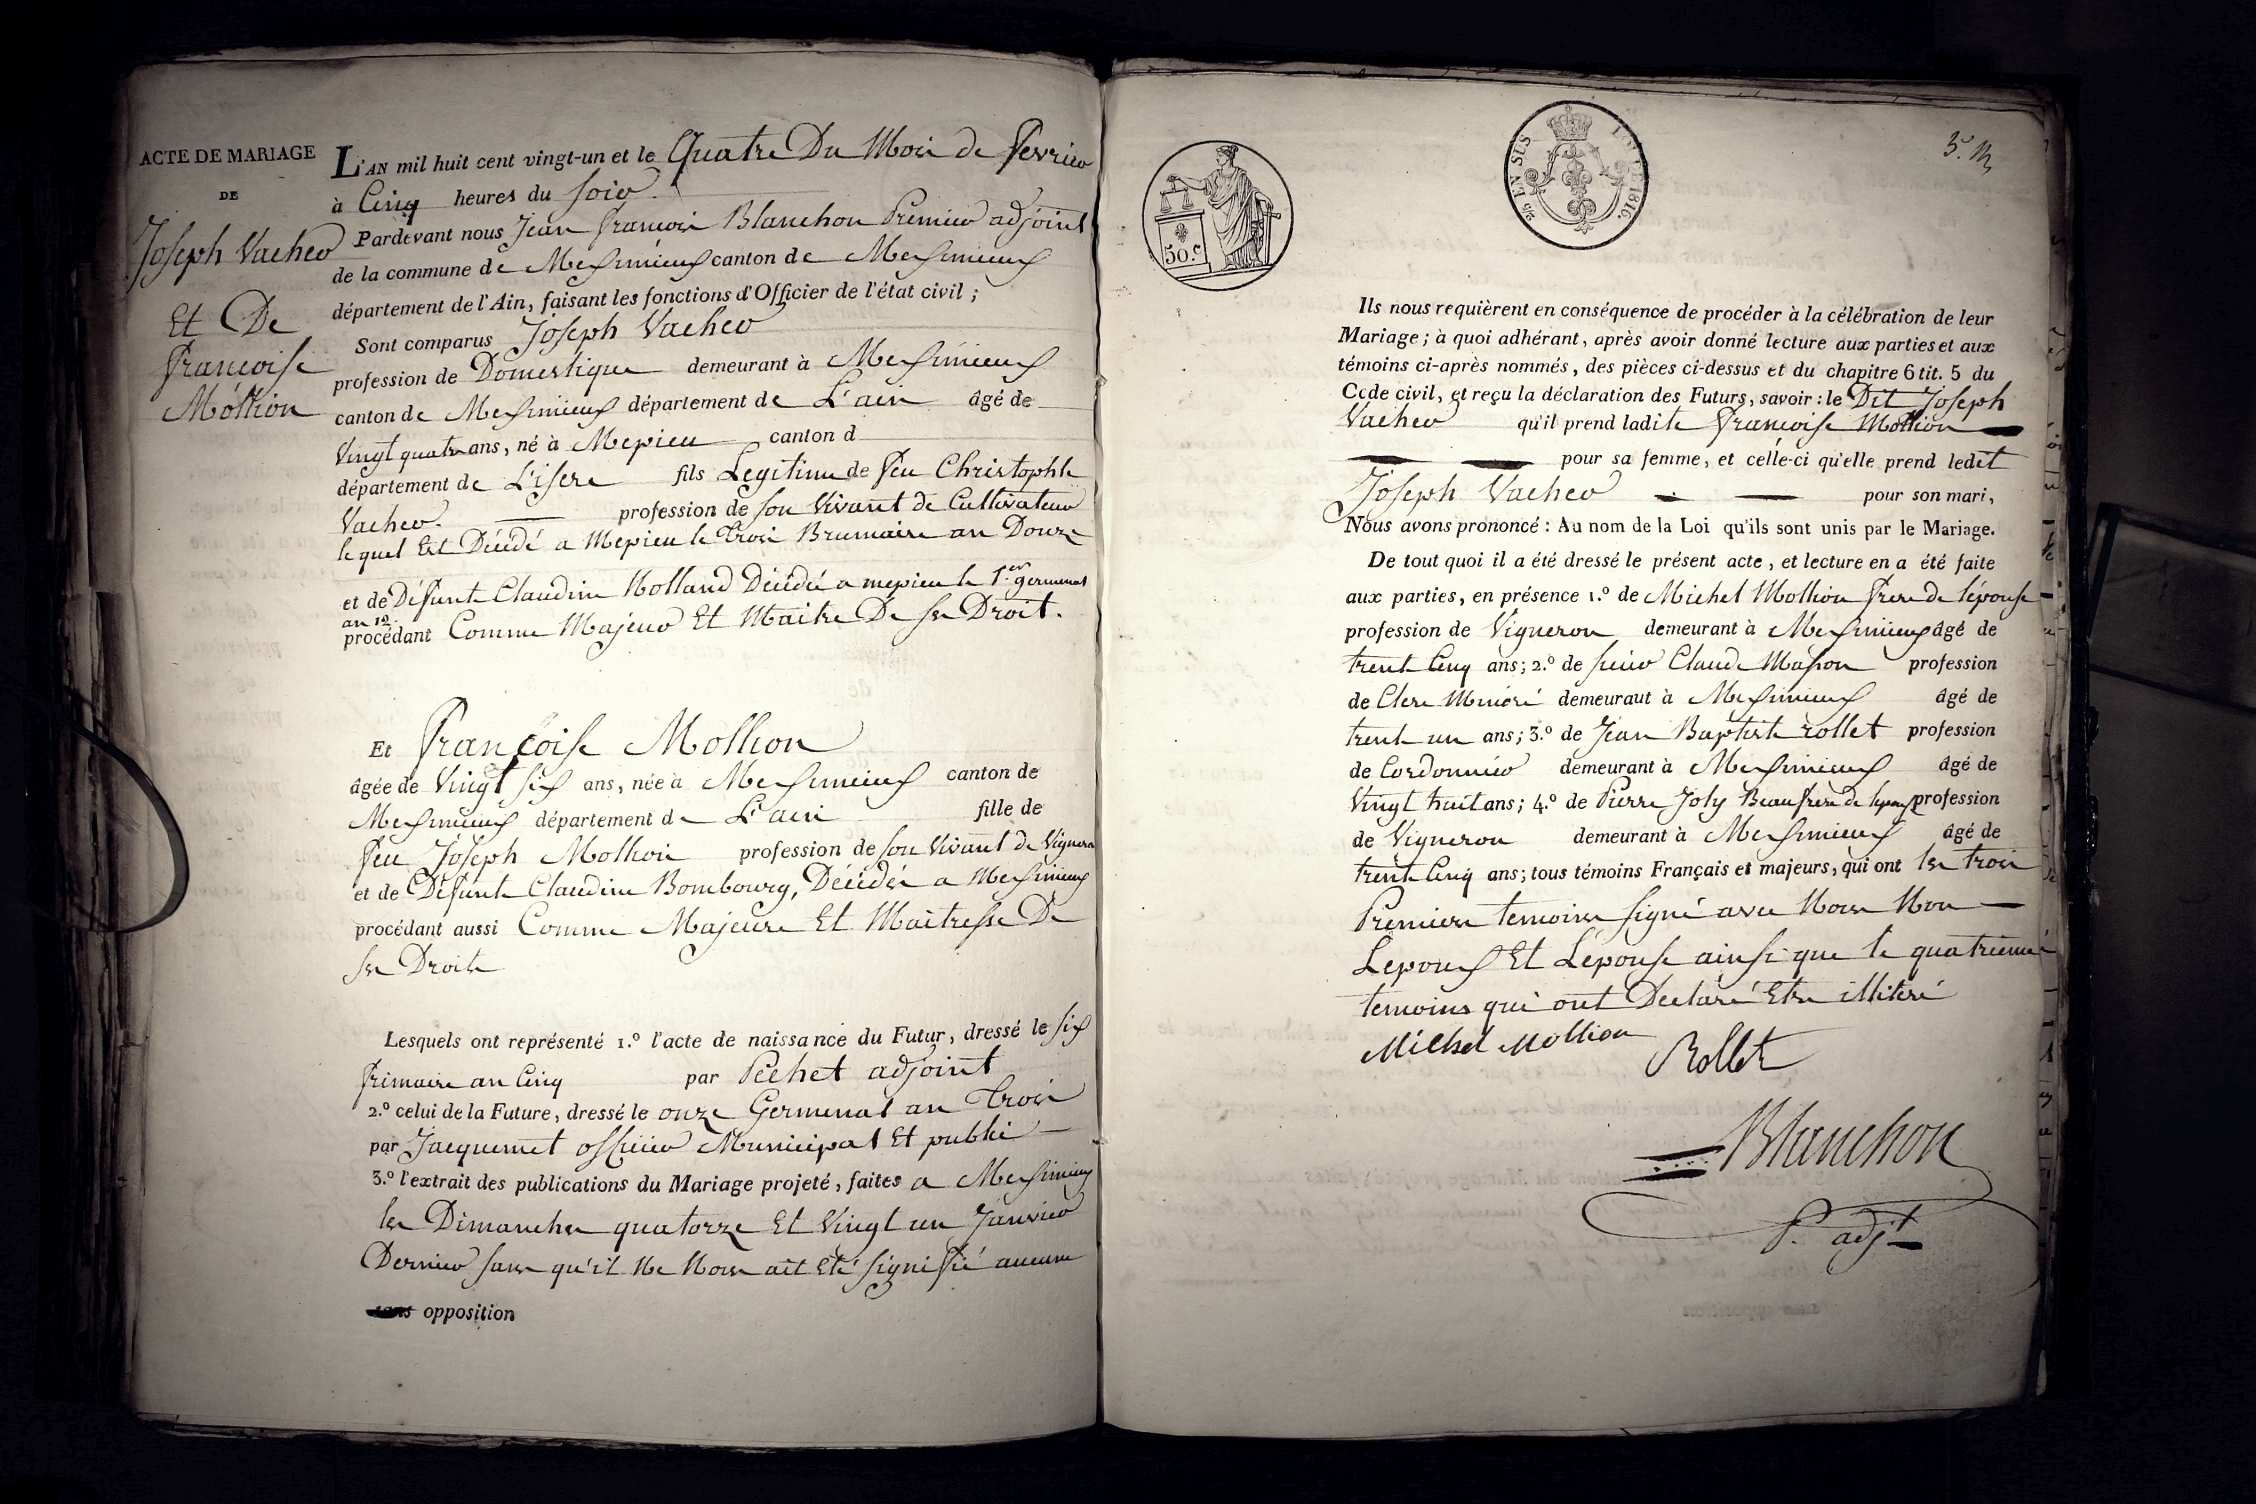 ACTE DE MARIAGE
DE
Joseph Vacher
Et De
francoise
Mollion
L'AN mil huit cent vingt-un et le Quatre Du Mois de fevrier
à Cinq heures du soir
Pardevant nous Jean francois Blanchon Premier adjoint
de la commune de Messimieux canton de Messimieux
département de l'Ain, faisant les fonctions d'Officier de l'état civil ;
Sont comparus Joseph Vacher
profession de Domestique demeurant à Messimieux
canton de Messimieux département de L'ain âgé de
Vingt quatre ans, né à Mepieu canton d
département de L'isere fils Legitime de feu Christophle
Vacher profession de son Vivant de Cultivateur
lequel Est Décédé a Mepieu le trois Brumaire an Douze
et de Défunte Claudine Rolland Décédée a mepieu le 1.er germinal
an 12.
procédant Comme Majeur Et Maitre De ses Droit.
Et Françoise Mollion
âgée de Vingt six ans, née à Messimieux canton de
Messimieux département de L'ain fille de
feu Joseph Mollion profession de son Vivant de Vigneron
et de Défunte Claudine Bombourg, Décédés a Messimieux
procédant aussi Comme Majeure Et Maitresse De
ses Droits
Lesquels ont représenté 1.º l'acte de naissance du Futur, dressé le six
frimaire an Cinq par Pechet adjoint
2.º celui de la Future, dressé le onze Germinal an trois
par Jacquemet officier Municipal Et public
3.º l'extrait des publications du Mariage projeté, faites a Messimieux
les Dimanches quatorze Et Vingt un Janvier
Dernier sans qu'il Ne Nous ait Eté signifié aucune
sans opposition
50.c
25 EN SUS
LOI DE 1816.
3.e m
Ils nous requièrent en conséquence de procéder à la célébration de leur
Mariage ; à quoi adhérant, après avoir donné lecture aux parties et aux
témoins ci-après nommés, des pièces ci-dessus et du chapitre 6 tit. 5 du
Code civil, et reçu la déclaration des Futurs, savoir : le Dit Joseph
Vacher qu'il prend ladite francoise Mollion
pour sa femme, et celle-ci qu'elle prend ledit
Joseph Vacher pour son mari,
Nous avons prononcé : Au nom de la Loi qu'ils sont unis par le Mariage.
De tout quoi il a été dressé le présent acte, et lecture en a été faite
aux parties, en présence 1.º de Michel Mollion frere de l'épouse
profession de Vigneron demeurant à Messimieux âgé de
trente Cinq ans ; 2.º de sieur Claude Masson profession
de Clerc Minoré demeuraut à Messimieux âgé de
trente un ans ; 3.º de Jean Baptiste rollet profession
de Cordonnier demeurant à Messimieux âgé de
Vingt huit ans ; 4.º de Pierre Joly Beaufrere de lepoux profession
de Vigneron demeurant à Messimieux âgé de
trente Cinq ans ; tous témoins Français et majeurs, qui ont les trois
Premiers temoins signé avec Nous Non
Lepoux Et L'épouse ainsi que le quatrieme
temoins qui ont Declaré Etre illiteré
Michel Mollion
Rollet
Blanchon
P. adjt